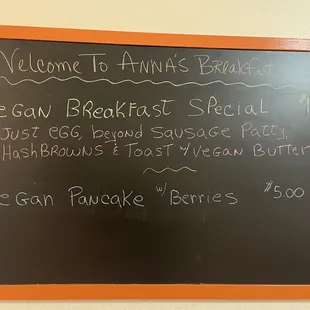 Welcome To Anna's Breakfast
egan Breakfast Special
Just egg, beyond sausage Patty,
HashBrowns & Toast w/ vegan Butter
egan Pancake w/ Berries $5.00